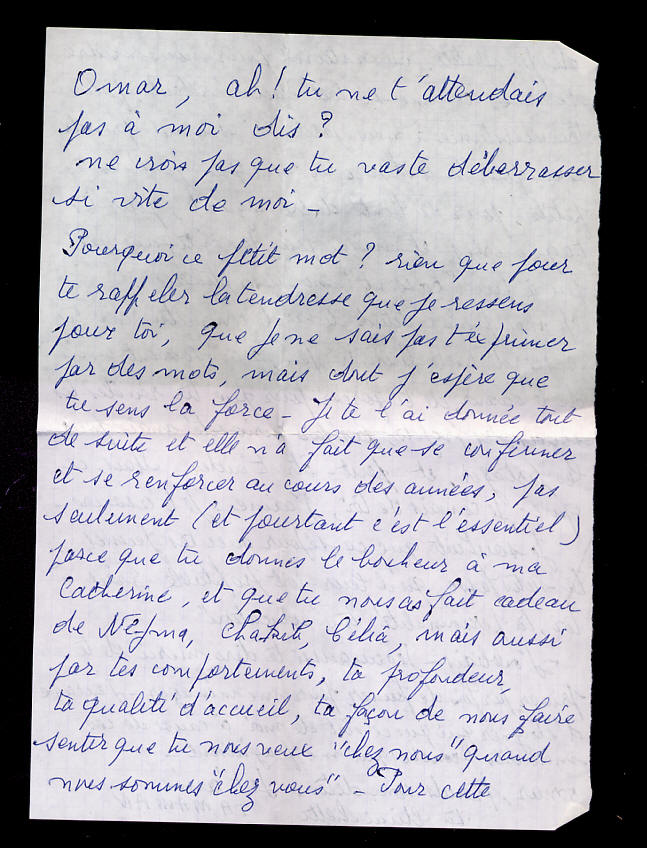 Omar, ah! tu ne t'attendais
pas à moi dis ?
ne crois pas que tu vas te débarrasser
si vite de moi _
Pourquoi ce petit mot ? rien que pour
te rappeler la tendresse que je ressens
pour toi, que je ne sais pas t'éxprimer
par des mots, mais dont j'espère que
tu sens la force _ Je te l'ai donnée tout
de suite et elle n'a fait que se confirmer
et se renforcer au cours des années, pas
seulement (et pourtant c'est l'essentiel)
parce que tu donnes le bonheur à ma
Catherine, et que tu nous as fait cadeau
de Nejma, Chakib, Célia, mais aussi
par tes comportements, ta profondeur,
ta qualité d'accueil, ta façon de nous faire
sentir que tu nous veux "chez nous" quand
nous sommes "chez vous" _ Pour cette